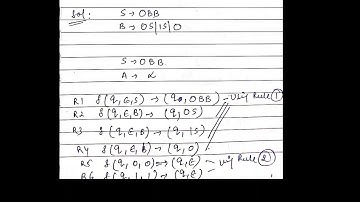 Sol: S → OBB
B → OS | 1S | O
S → OBB
A → α
R1 δ(q, ε, S) → (q, OBB) - Using Rule ①
R2 δ(q, ε, B) → (q, OS)
R3 δ(q, ε, B) → (q, 1S)
R4 δ(q, ε, B) → (q, O)
R5 δ(q, 0, 0) → (q, ε) - Using Rule ②
R6 δ(q, 1, 1) → (q, ε)